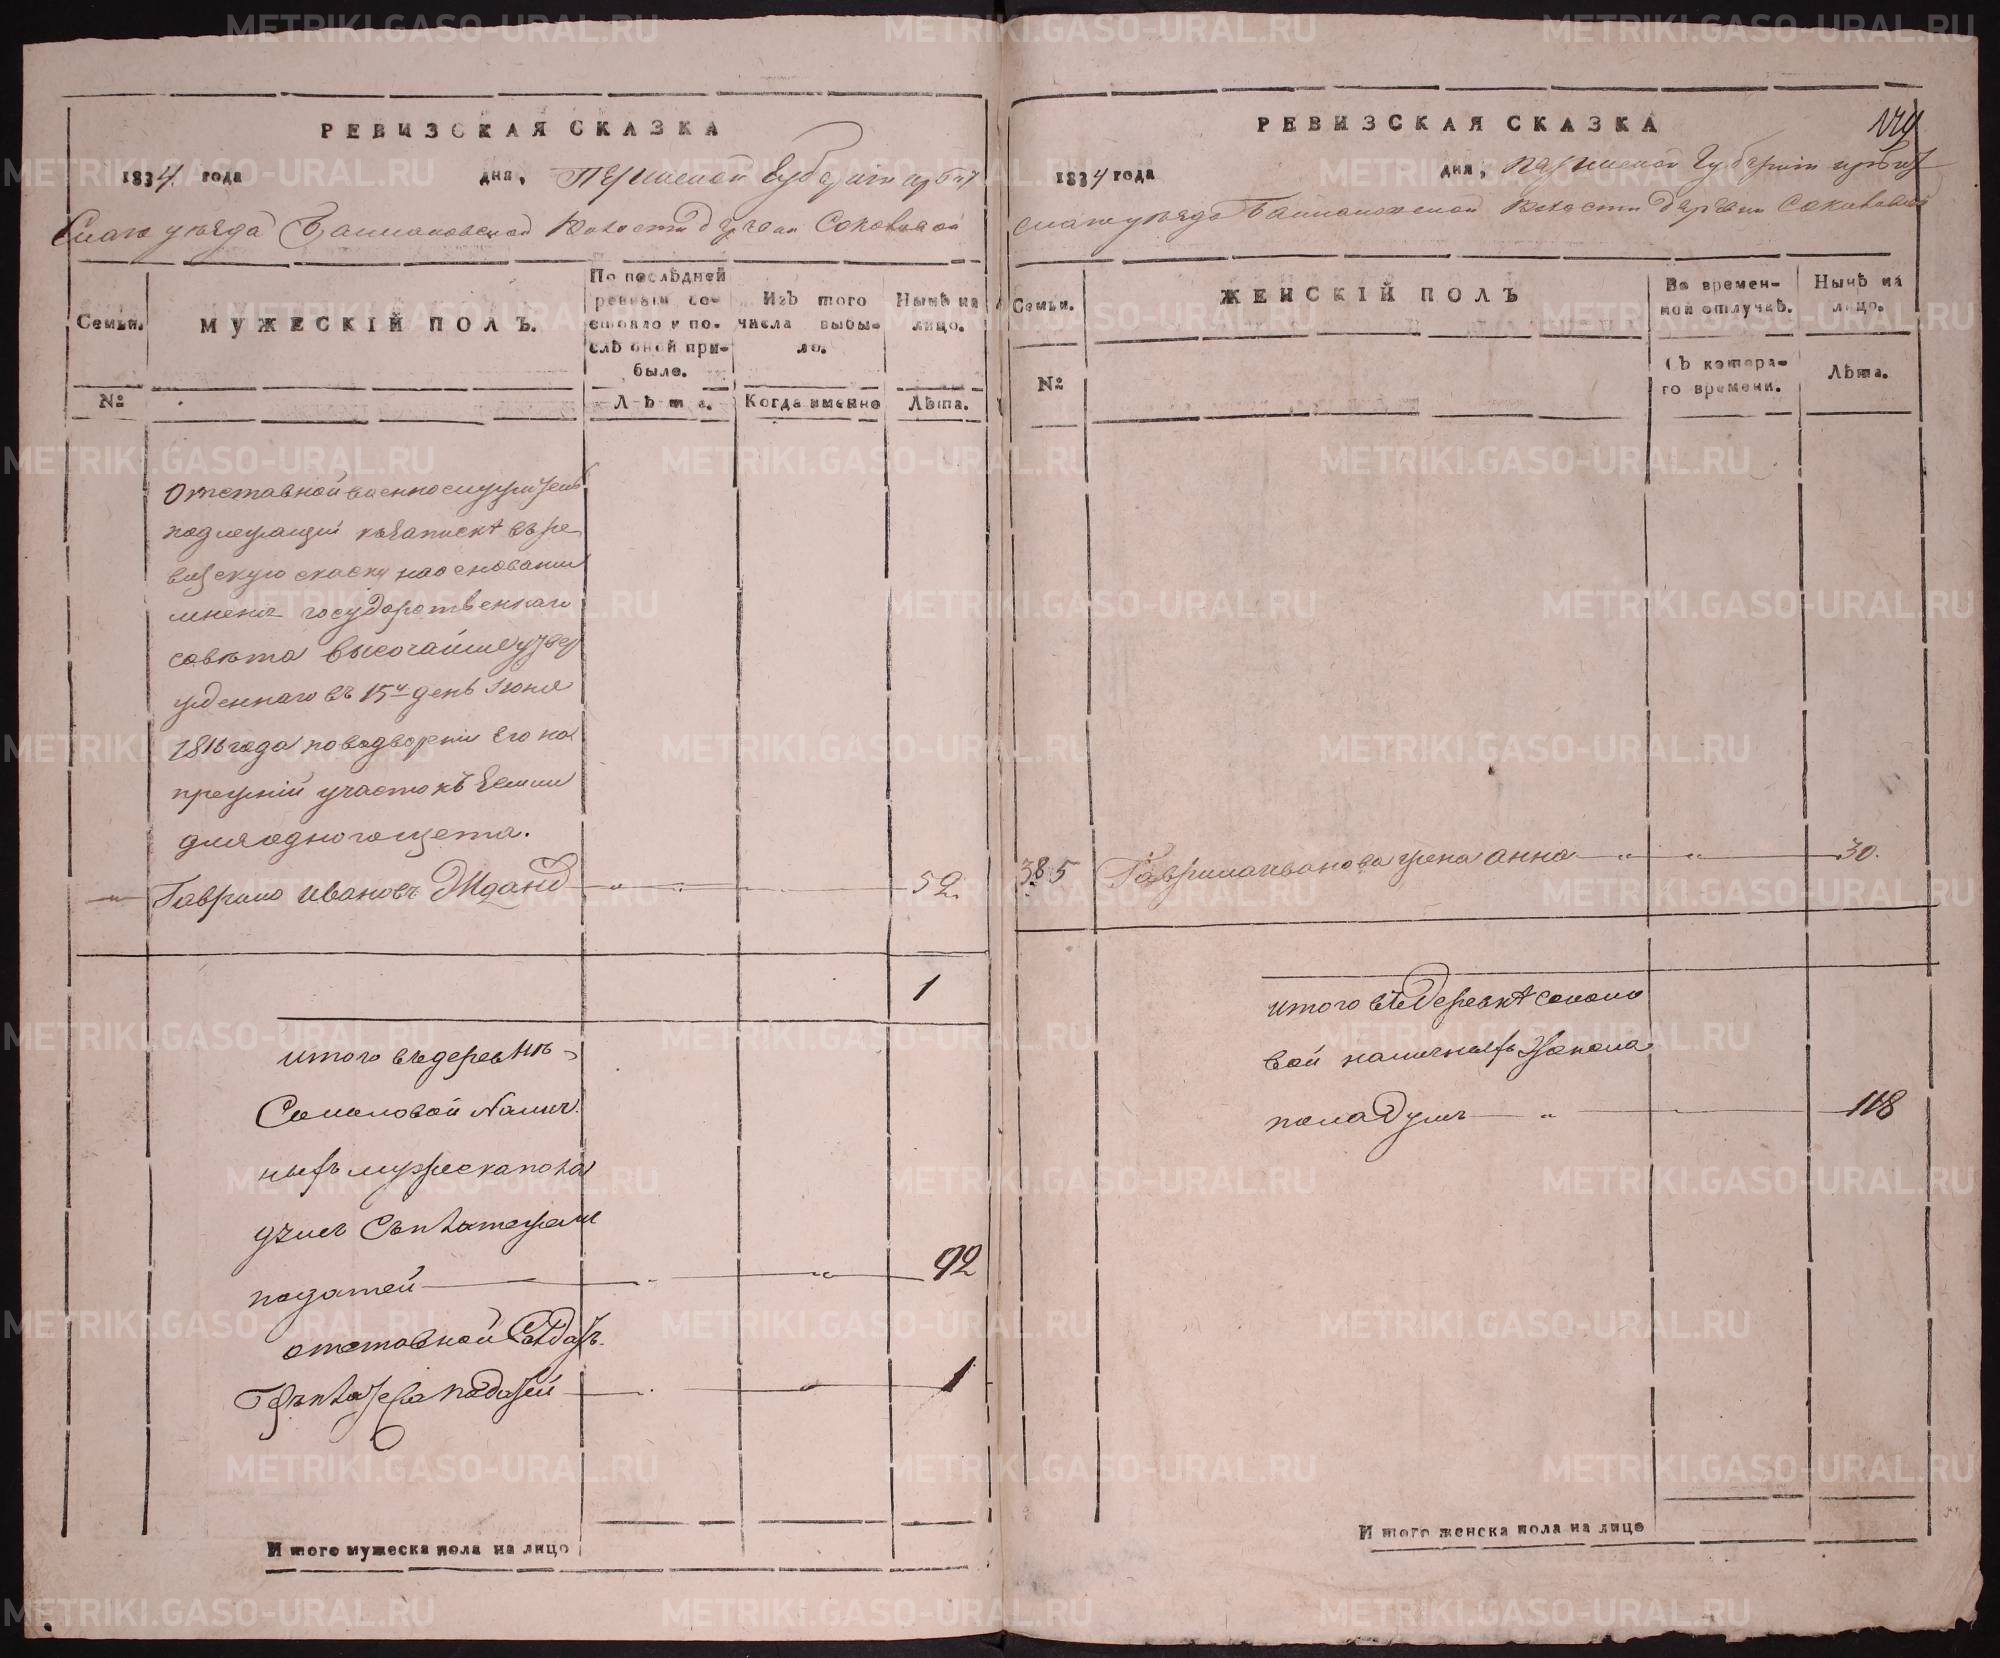 РЕВИЗСКАЯ СКАЗКА
1834 года дня, Пермской Губернии Ирбит
скаго уезда волости деревни Соколовой
Семьи.
МУЖЕСКІЙ ПОЛЪ.
По послѣдней
ревизіи со-
стояло и по-
слѣ оной при-
было.
Изъ того
числа выбы-
ло.
Нынѣ на
лицо.
№
Лѣта.
Когда именно
Лѣта.
Отставной военнослужитель
подлежащий къ Запискѣ въ ре
визскую скаску на основании
мнения государственнаго
совѣта высочайше утвер
жденнаго въ 15й день Июня
1816 года по водворении его на
прежний участокъ Земли
для одного щета.
Гаврило Ивановъ Жданов 52
1
итого въ деревнѣ
Соколовой Налич
ныхъ мужеска пола
душъ Съ платежем
податей 92
отставной Солдатъ
безъ платежа податей 1
И того мужеска пола на лицо
РЕВИЗСКАЯ СКАЗКА
1834 года дня, Пермской Губернии Ирбит
скаго уезда волости деревни Соколовой
Семьи.
ЖЕНСКІЙ ПОЛЪ
Во времен-
ной отлучкѣ.
Нынѣ на
лицо.
№
Съ котора-
го времени.
Лѣта.
385 Гаврила Иванова жена Анна 30.
итого въ Деревнѣ Соколо
вой наличныхъ Женска
пола Душъ 118
И того женска пола на лицо
METRIKI.GASO-URAL.RU